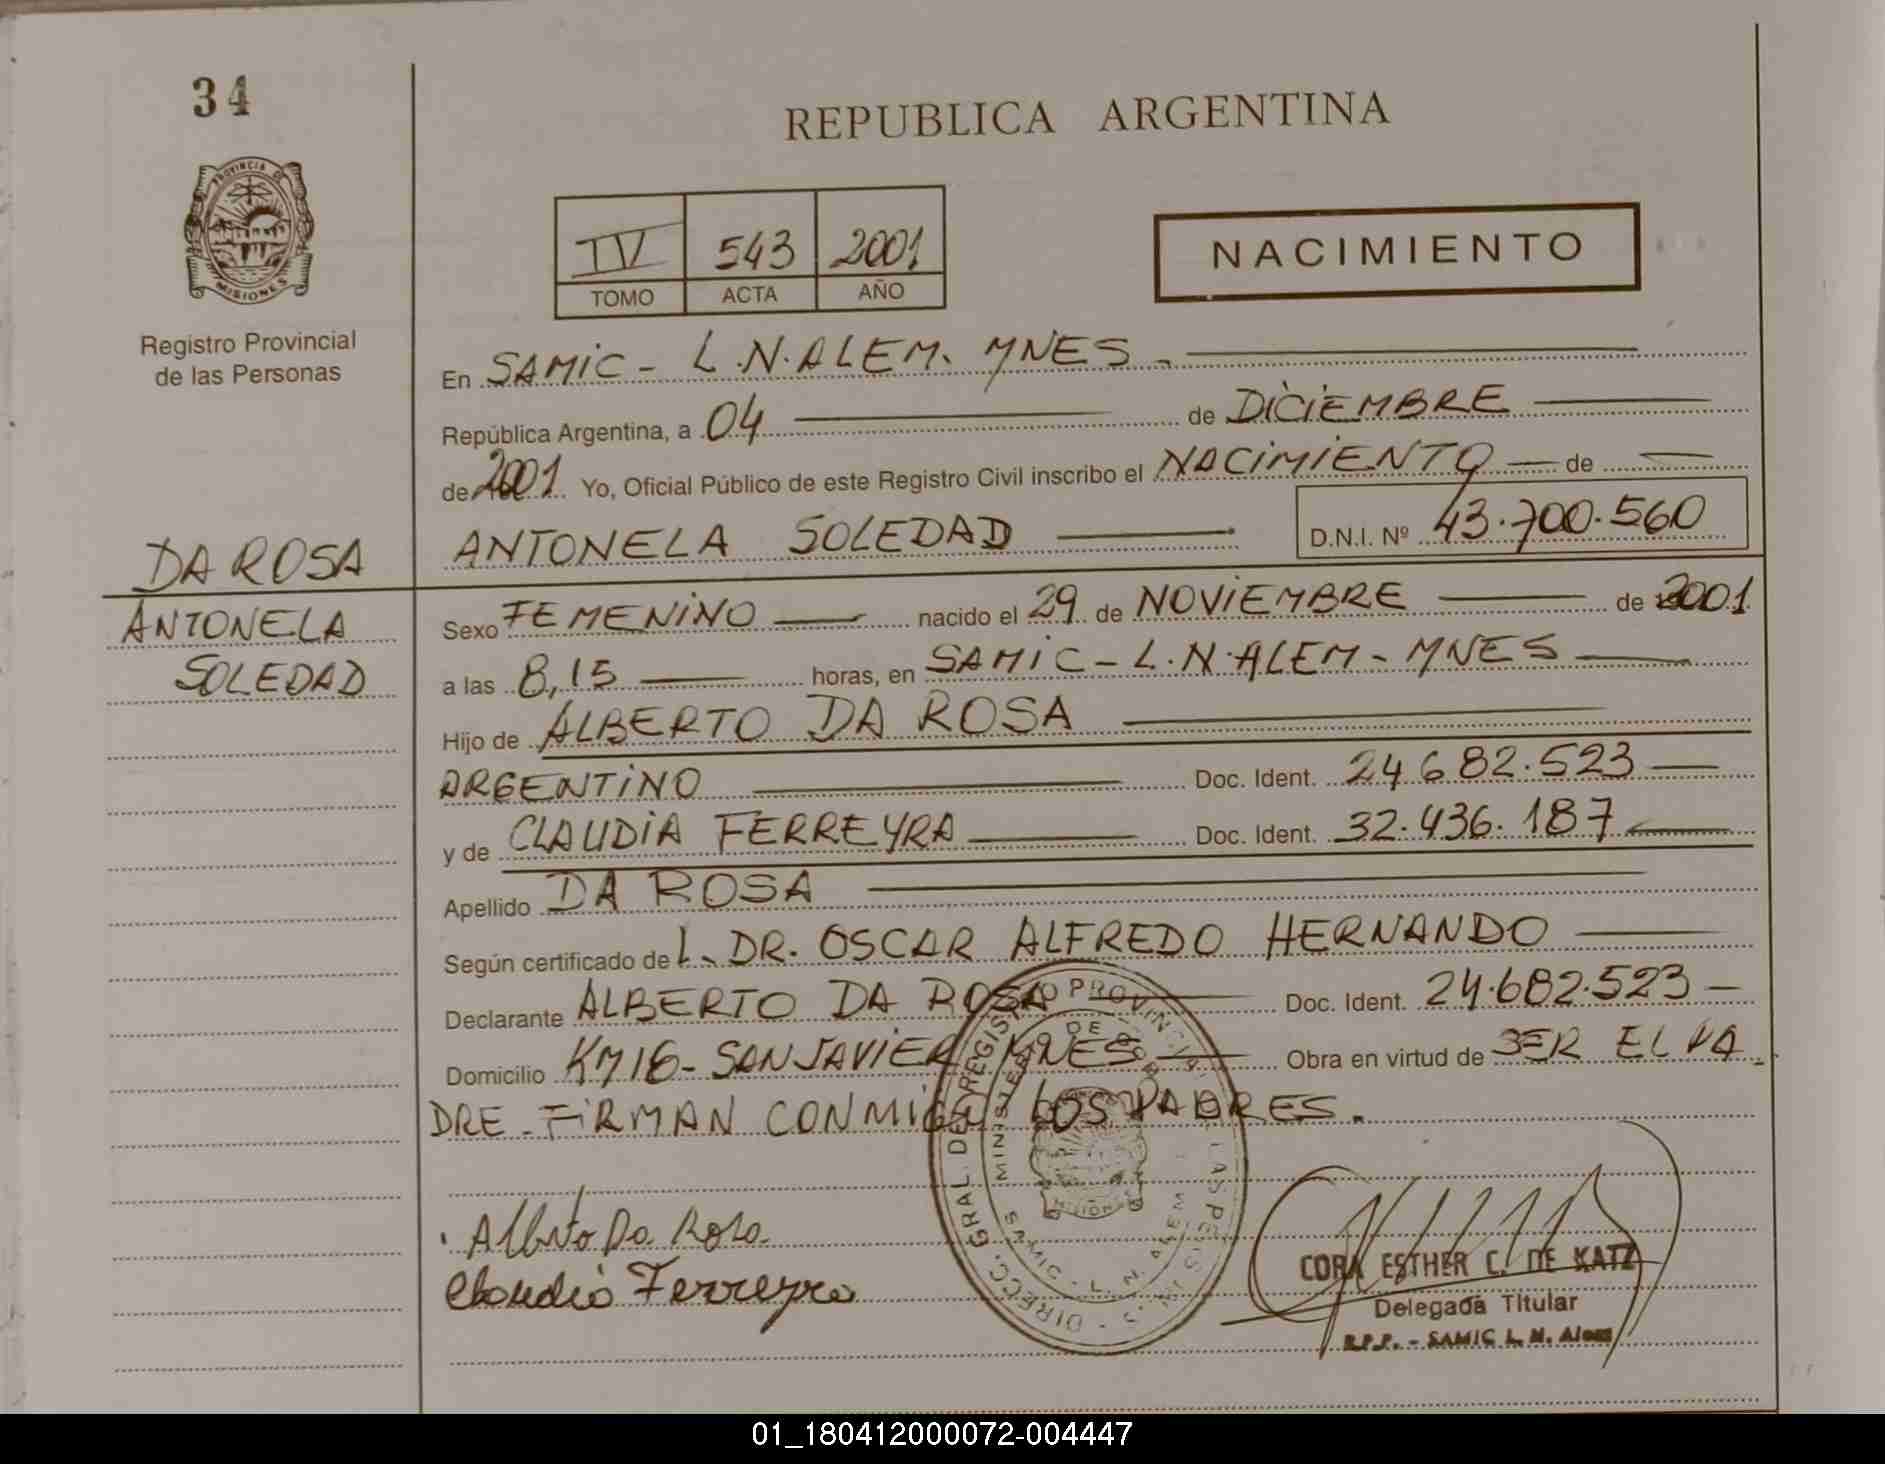 34
REPUBLICA ARGENTINA
PROVINCIA DE
MISIONES
Registro Provincial
de las Personas
IV 543 2001
TOMO ACTA AÑO
NACIMIENTO
En SAMIC - L.N.ALEM. MNES.
República Argentina, a 04 de DICIEMBRE
de 2001 Yo, Oficial Público de este Registro Civil inscribo el NACIMIENTO de
ANTONELA SOLEDAD D.N.I. Nº 43.700.560
DA ROSA
ANTONELA
SOLEDAD
Sexo FEMENINO nacido el 29 de NOVIEMBRE de 2001
a las 8,15 horas, en SAMIC - L.N.ALEM - MNES
Hijo de ALBERTO DA ROSA
ARGENTINO Doc. Ident. 24.682.523
y de CLAUDIA FERREYRA Doc. Ident. 32.436.187
Apellido DA ROSA
Según certificado de L. DR. OSCAR ALFREDO HERNANDO
Declarante ALBERTO DA ROSA Doc. Ident. 24.682.523
Domicilio KM16 - SAN JAVIER MNES Obra en virtud de SER EL PA
DRE. FIRMAN CONMIGO LOS PADRES.
Alberto Da Rosa
Claudia Ferreyra
DIRECC. GRAL. DEL REGISTRO PROVINCIAL DE LAS PERSONAS
MINISTERIO DE GOB
SAMIC - L. N. ALEM
MISIONES
CORA ESTHER C. DE KATZ
Delegada Titular
R.P.P. - SAMIC L. N. Alem
01_180412000072-004447